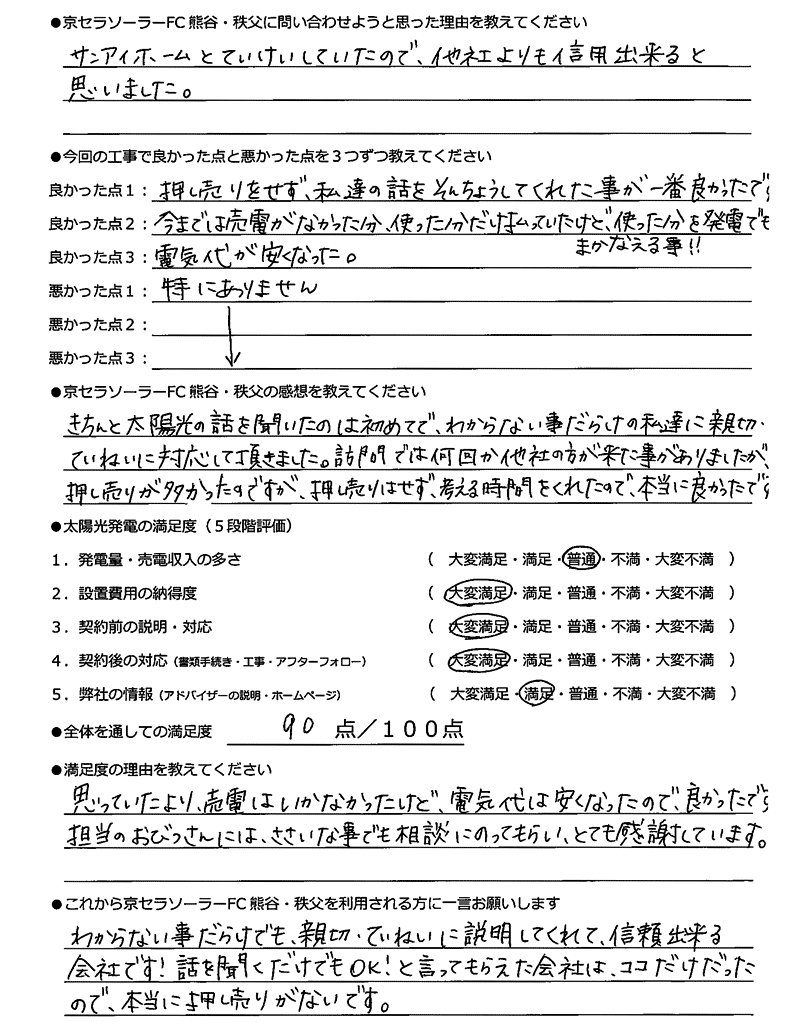 ●京セラソーラーFC熊谷・秩父に問い合わせようと思った理由を教えてください
サンアイホームとていけいしていたので、他社よりも信用出来ると
思いました。
●今回の工事で良かった点と悪かった点を3つずつ教えてください
良かった点1：押し売りをせず、私達の話をそんちょうしてくれた事が一番良かったです
良かった点2：今までは売電がなかった分、使った分だけ払っていたけど、使った分を発電でも
まかなえる事!!
良かった点3：電気代が安くなった。
悪かった点1：特にありません
悪かった点2：
悪かった点3：
●京セラソーラーFC熊谷・秩父の感想を教えてください
きちんと太陽光の話を聞いたのは初めてで、わからない事だらけの私達に親切・
ていねいに対応して頂きました。訪問では何回か他社の方が来た事がありましたが、
押し売りが多かったのですが、押し売りはせず、考える時間をくれたので、本当に良かったです
●太陽光発電の満足度（5段階評価）
1．発電量・売電収入の多さ （ 大変満足・満足・普通・不満・大変不満 ）
2．設置費用の納得度 （ 大変満足・満足・普通・不満・大変不満 ）
3．契約前の説明・対応 （ 大変満足・満足・普通・不満・大変不満 ）
4．契約後の対応（書類手続き・工事・アフターフォロー） （ 大変満足・満足・普通・不満・大変不満 ）
5．弊社の情報（アドバイザーの説明・ホームページ） （ 大変満足・満足・普通・不満・大変不満 ）
●全体を通しての満足度 90 点／100点
●満足度の理由を教えてください
思っていたより、売電はいかなかったけど、電気代は安くなったので、良かったです
担当のおびつさんには、ささいな事でも相談にのってもらい、とても感謝しています。
●これから京セラソーラーFC熊谷・秩父を利用される方に一言お願いします
わからない事だらけでも、親切・ていねいに説明してくれて、信頼出来る
会社です!話を聞くだけでもOK!と言ってもらえた会社は、ココだけだった
ので、本当に押し売りがないです。